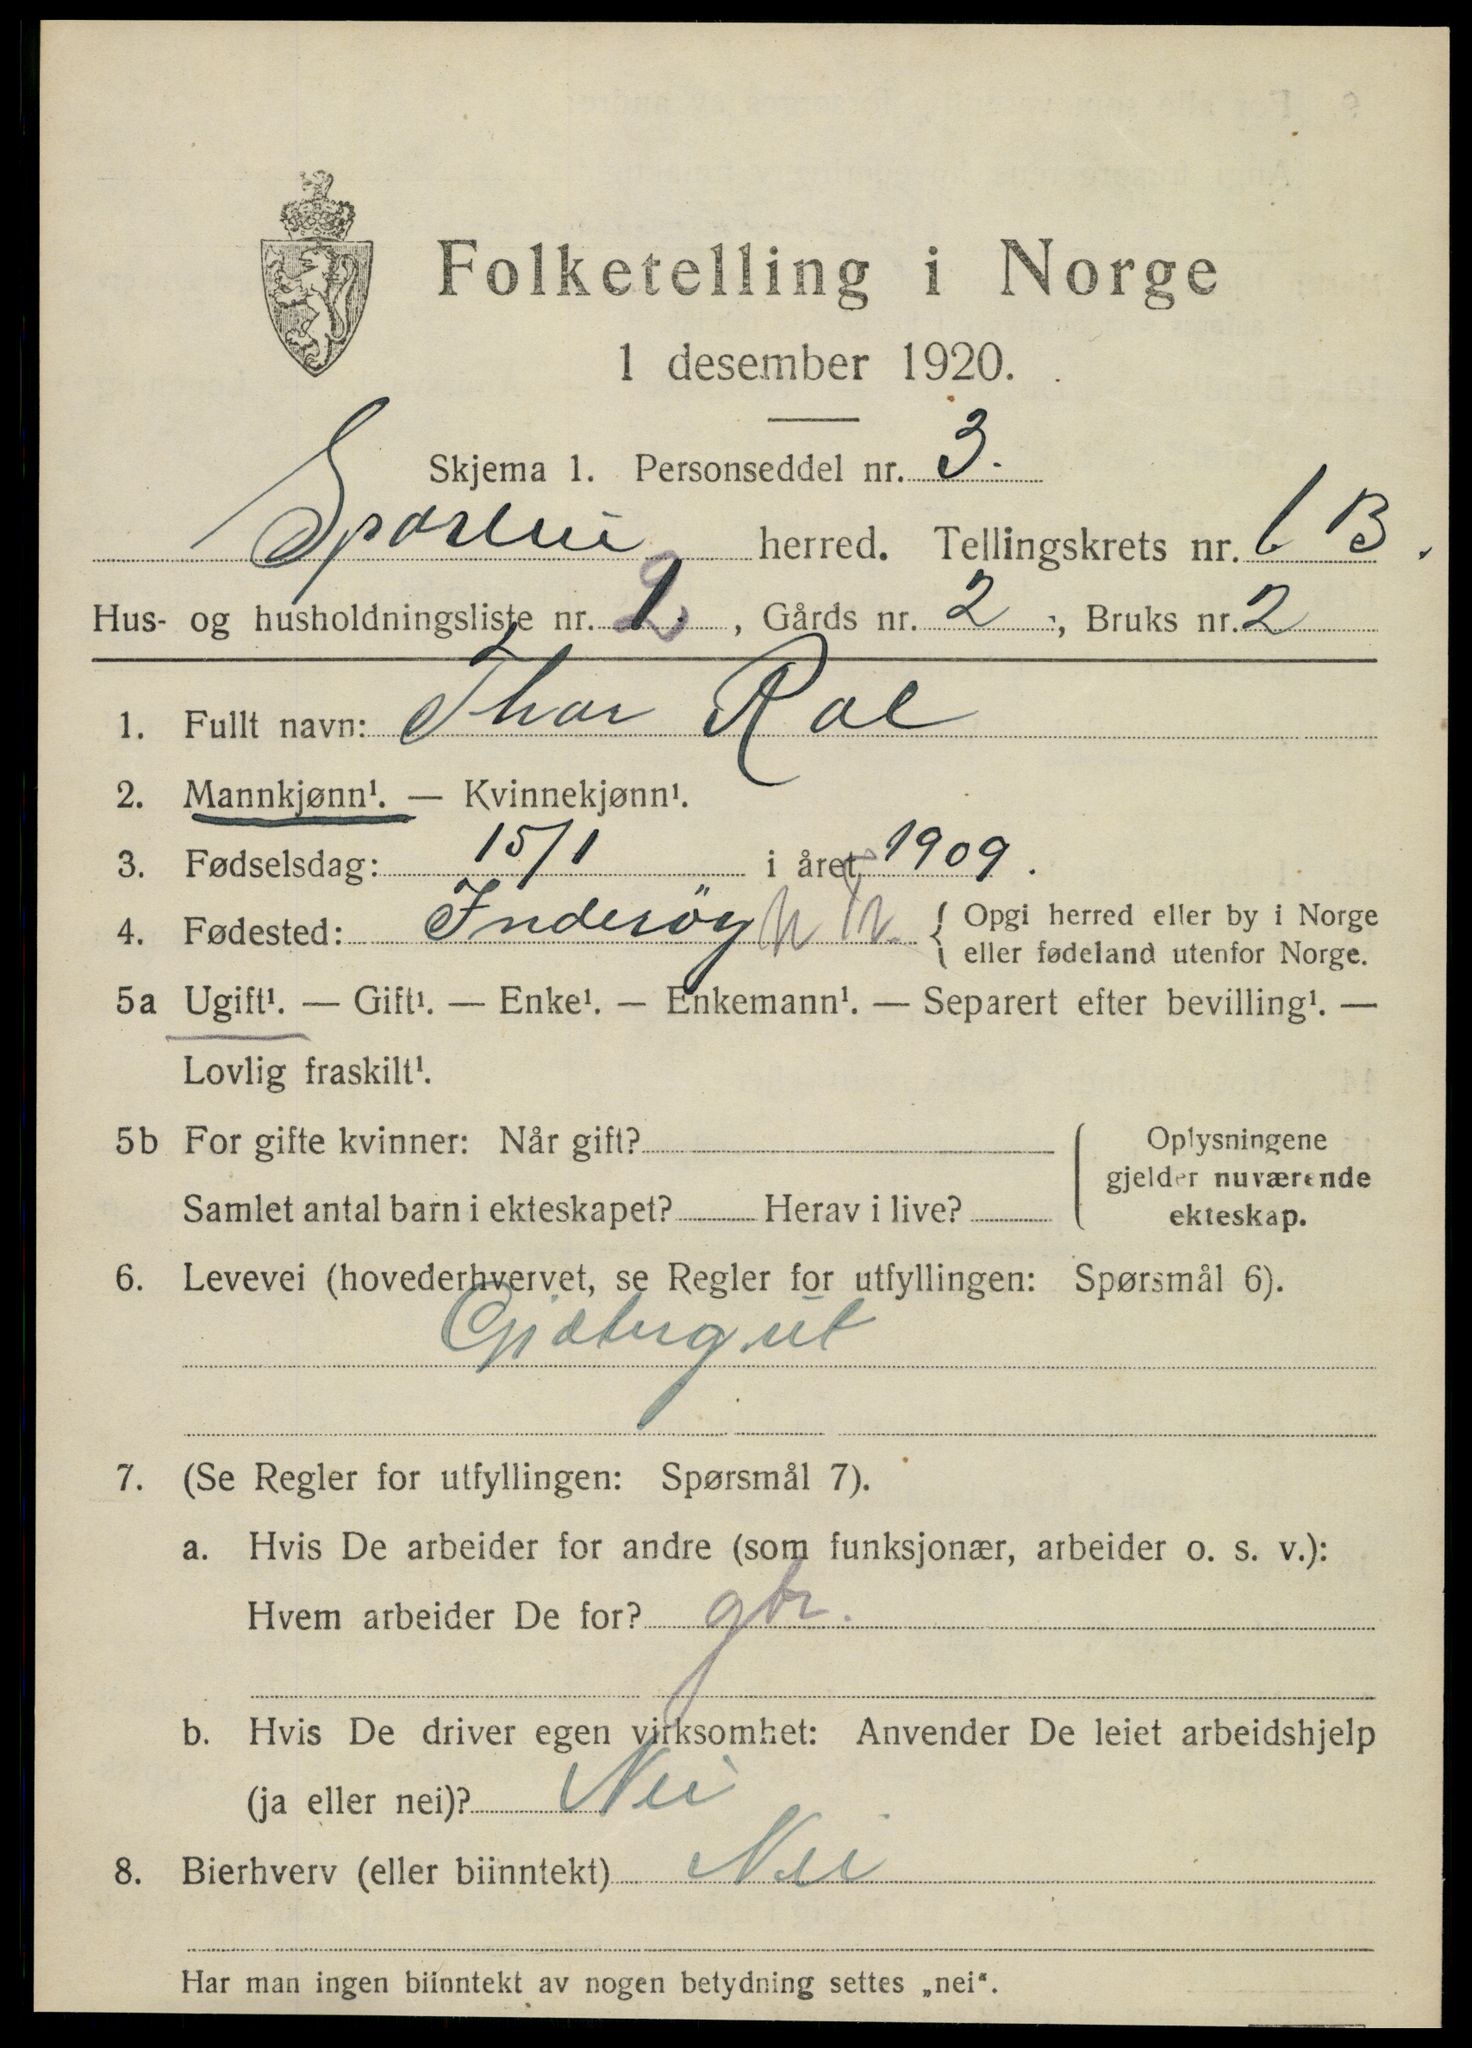 Folketelling i Norge
1 desember 1920.
Skjema 1. Personseddel nr. 3.
herred. Tellingskrets nr. B.
Hus- og husholdningsliste nr. 2, Gårds nr. 2, Bruks nr. 2
1. Fullt navn: Thor Roel
2. Mannkjønn¹. — Kvinnekjønn¹.
3. Fødselsdag: 15/1 i året 1909.
4. Fødested: Inderöy { Opgi herred eller by i Norge
eller fødeland utenfor Norge.
5a Ugift¹. — Gift¹. — Enke¹. — Enkemann¹. — Separert efter bevilling¹. —
Lovlig fraskilt¹.
5b For gifte kvinner: Når gift?
Samlet antal barn i ekteskapet? Herav i live?
Oplysningene
gjelder nuværende
ekteskap.
6. Levevei (hovederhvervet, se Regler for utfyllingen: Spørsmål 6).
Gjætergut
7. (Se Regler for utfyllingen: Spørsmål 7).
a. Hvis De arbeider for andre (som funksjonær, arbeider o. s. v.):
Hvem arbeider De for? gbr.
b. Hvis De driver egen virksomhet: Anvender De leiet arbeidshjelp
(ja eller nei)? Nei
8. Bierhverv (eller biinntekt) Nei
Har man ingen biinntekt av nogen betydning settes „nei“.